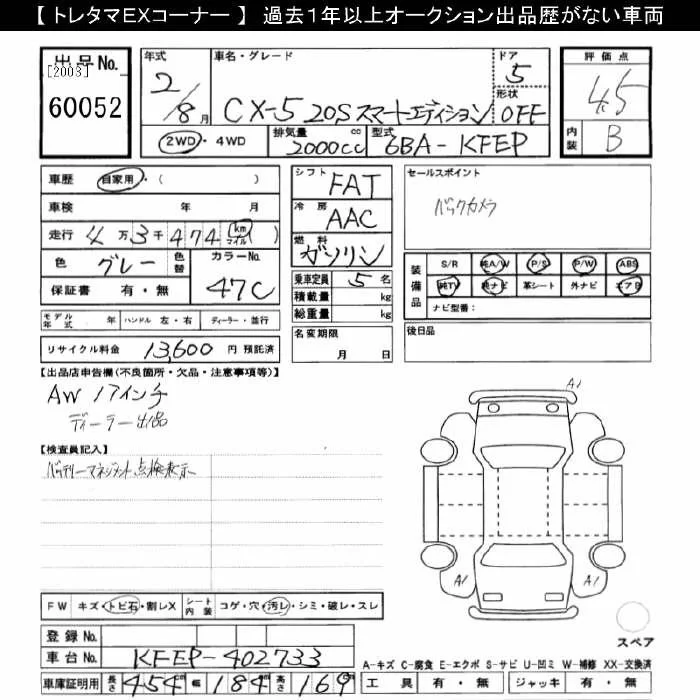 【 トレタマEXコーナー 】 過去１年以上オークション出品歴がない車両
出品No.
[2003]
60052
年式
2/8月
車名・グレード
CX-5 20S スマートエディション
ドア
5
形状
OFF
評価点
4.5
内装
B
2WD・4WD
排気量
2000cc
cc
型式
6BA-KFEP
車歴
自家用・(　　　)
車検　年　月
走行 4万3千474 (km マイル)
色 グレー
色替
カラーNo.
47C
保証書 有・無
シフト
FAT
冷房
AAC
燃料
ガソリン
乗車定員 5名
積載量 kg
総重量 kg
セールスポイント
バックカメラ
装備品
S/R 純A/W P/S P/W ABS
純TV 純ナビ 革シート 外ナビ エアB
ナビ型番：
モデル年式　年 ハンドル 左・右 ディーラー・並行
リサイクル料金 13,600 円 預託済
名変期限
月　日
後日品
【出品店申告欄(不良箇所・欠品・注意事項等)】
AW 17インチ
ディーラー出品
【検査員記入】
バッテリーマネジメント点検表示
A1
A1
A1
スペア
FW キズ・トビ石・割レX
シート内装 コゲ・穴・汚レ・シミ・破レ・スレ
登録No.
車台No. KFEP-402733
車庫証明用 長さ 454 幅 184 高さ 169
A-キズ C-腐食 E-エクボ S-サビ U-凹ミ W-補修 XX-交換済
工具 有・無 ジャッキ 有・無